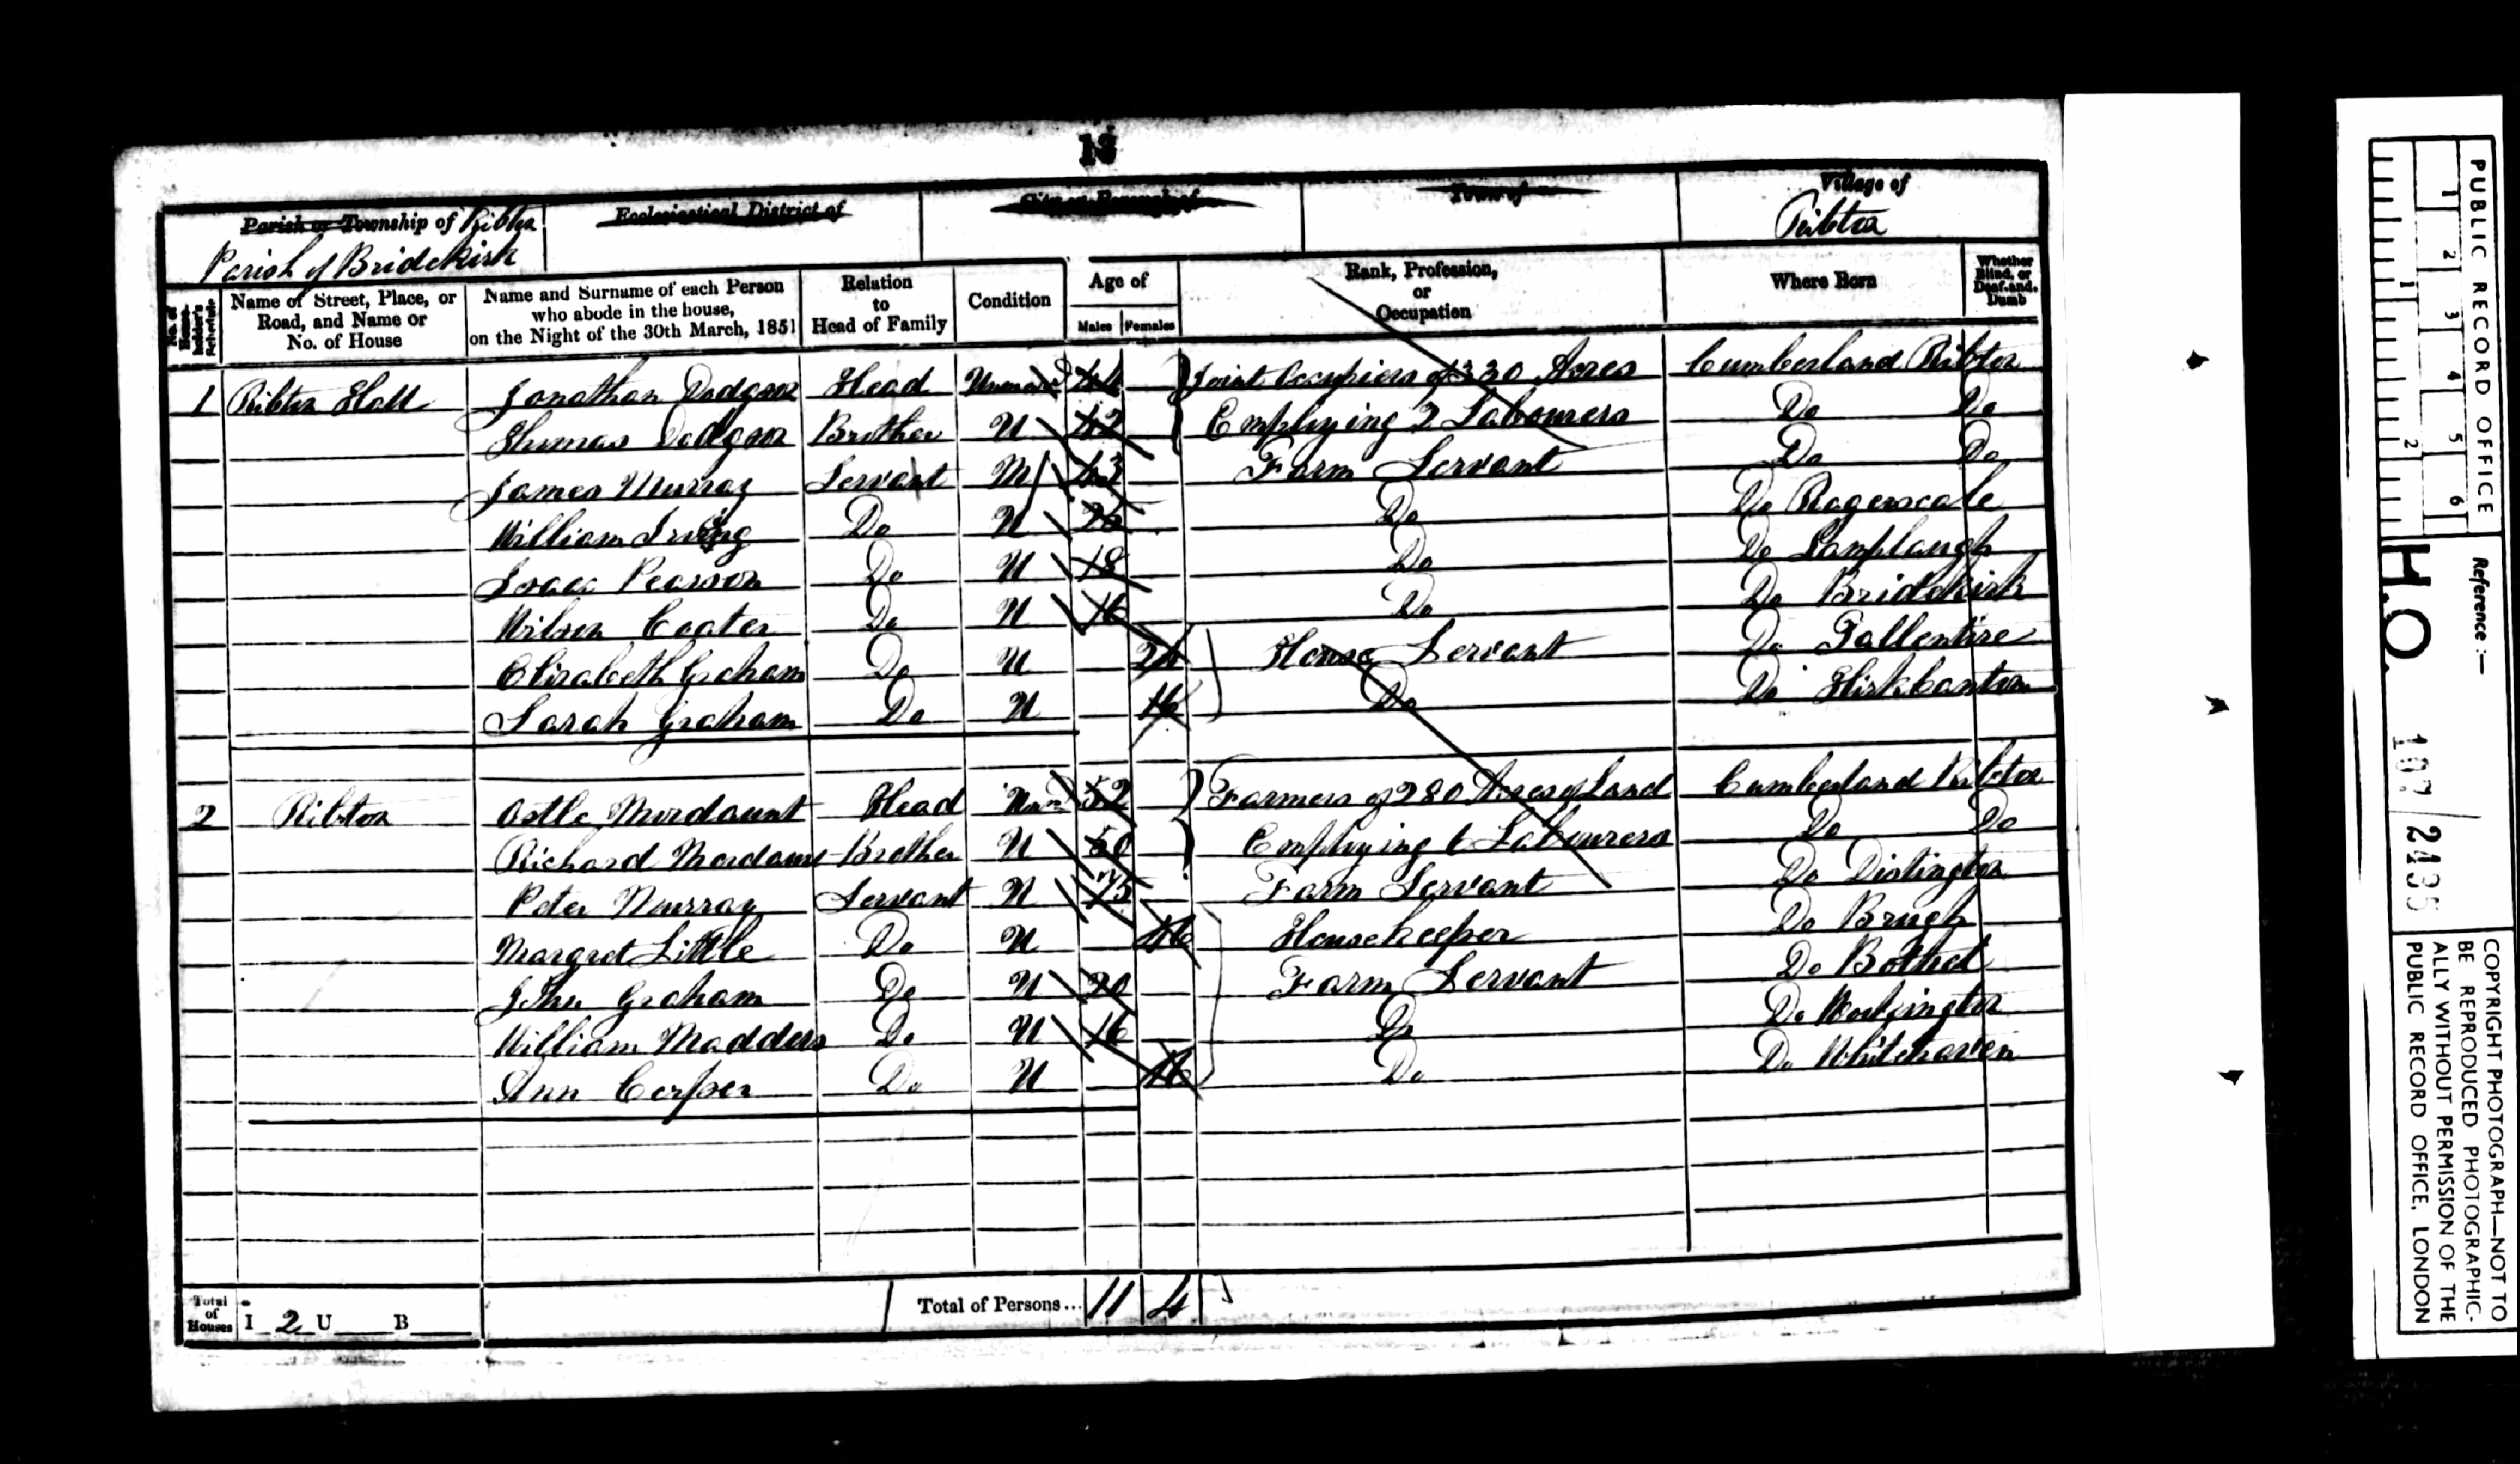 13
Parish or Township of Ribton
Parish of Bridekirk
Ecclesiastical District of
City or Borough of
Town of
Village of
Ribton
No. of House-holder's Schedule
Name of Street, Place, or Road, and Name or No. of House
Name and Surname of each Person who abode in the house, on the Night of the 30th March, 1851
Relation to Head of Family
Condition
Age of
Males Females
Rank, Profession, or Occupation
Where Born
Whether Blind, or Deaf-and-Dumb
1 Ribton Hall Jonathan Dodgson Head 44 Joint Occupiers of 330 Acres Cumberland Ribton
Thomas Dodgson Brother U 42 Employing 2 Labourers Do Do
James Murray Servant M 43 Farm Servant Do Do
William Irving Do U Do Do Rogerscale
Isaac Pearson Do U 18 Do Do Lamplaugh
Wilson Coates Do U 16 Do Do Bridekirk
Elizabeth Graham Do U House Servant Do Tallentire
Sarah Graham Do U 16 Do Do Kirkbanton
2 Ribton Mordaunt Head 52 Farmers of 280 Acres of Land Cumberland Ribton
Richard Mordaunt Brother U 50 Employing 6 Labourers Do Do
Peter Murray Servant U Farm Servant Do Distington
Margret Little Do U 46 Housekeeper Do Brugh
John Graham Do U 20 Farm Servant Do Bothel
William Madders Do U 16 Do Do Workington
Ann Do U 16 Do Do Whitehaven
Total of Houses I 2 U B
Total of Persons... 11 4
PUBLIC RECORD OFFICE
1 2 3 4 5 6
1 2
Reference:—
H.O. 107/2435
COPYRIGHT PHOTOGRAPH—NOT TO
BE REPRODUCED PHOTOGRAPHIC-
ALLY WITHOUT PERMISSION OF THE
PUBLIC RECORD OFFICE, LONDON